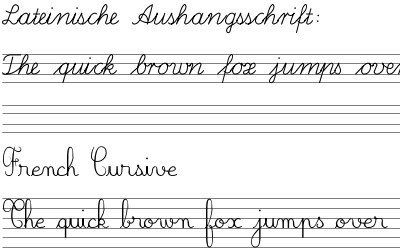 Lateinische Aushangsschrift:
The quick brown fox jumps over
French Cursive
The quick brown fox jumps over